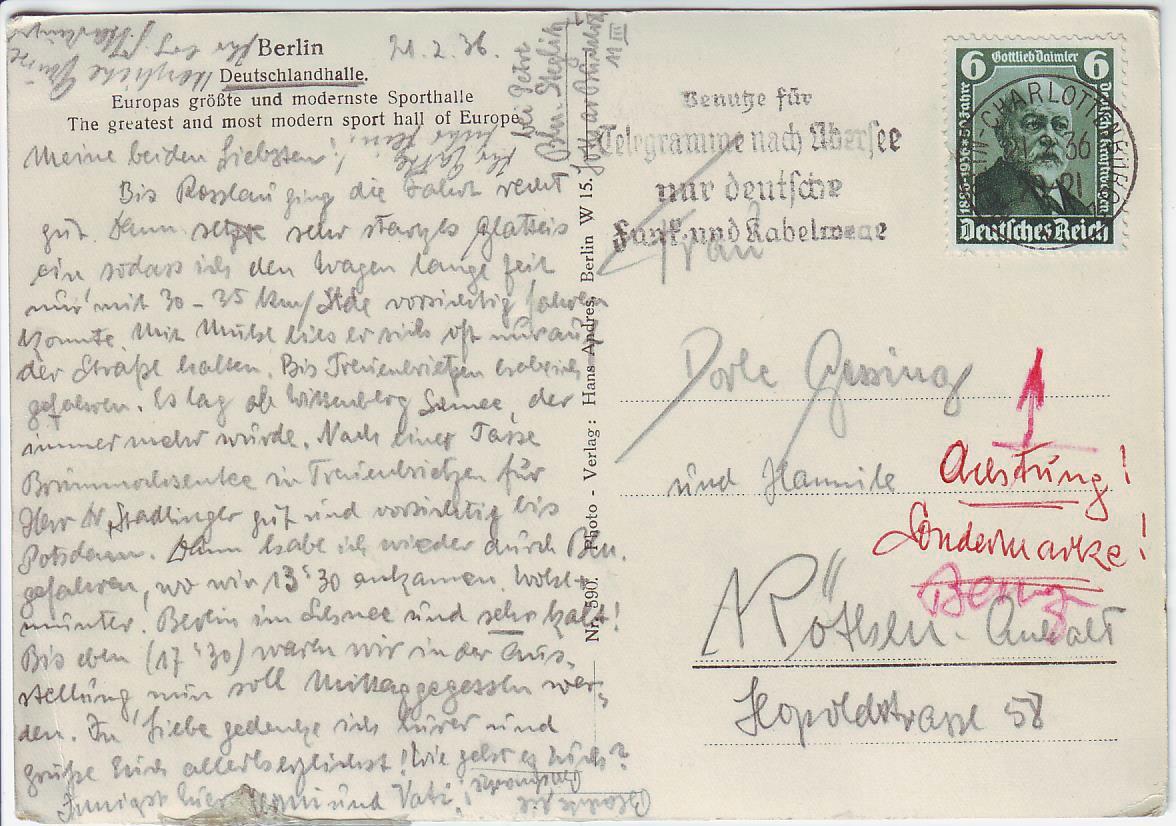 Berlin
21.2.36.
Deutschlandhalle.
Europas größte und modernste Sporthalle
The greatest and most modern sport hall of Europe
Meine beiden Liebsten!
Bis Rosslau ging die Fahrt recht
gut. Dann setzte sehr starkes Glatteis
ein sodass ich den Wagen lange Zeit
nur mit 30 - 35 km/Stde vorsichtig fahren
konnte. Mit Mühe lies er sich oft nur auf
der Straße halten. Bis Treuenbrietzen habe ich
gefahren. Es lag ab Wittenberg Schnee, der
immer mehr wurde. Nach einer Tasse
in Treuenbrietzen für
Herr Dr. Stadlinger gut und vorsichtig bis
Potsdam. Dann habe ich wieder durch Bln.
gefahren, wo wir 13'30 ankamen. Wohl u.
munter. Berlin im Schnee und sehr kalt!
Bis eben (17'30) waren wir in der Aus-
stellung, nun soll Mittaggegessen wer-
den. In Liebe gedenke ich Eurer und
grüße Euch allerherzlichst! Wie geht es Euch?
Innigst Euer und Vati!
Herzliche Grüße
Ihr
bei Petri
Bln Steglitz
11 III
Nr. 590. Photo - Verlag: Hans Andres, Berlin W 15.
Benutze für
Telegramme nach Übersee
nur deutsche
Funk- und Kabelwege
6 Gottlieb Daimler 6
1886-1936 * 50 Jahre
deutsche Kraftwagen
Deutsches Reich
BERLIN-CHARLOTTENBURG
Frau
Dorle Gessing
und Hannile
Achtung!
Sondermarke!
Benz
Köthen - Anhalt
Leopoldstrasse 58